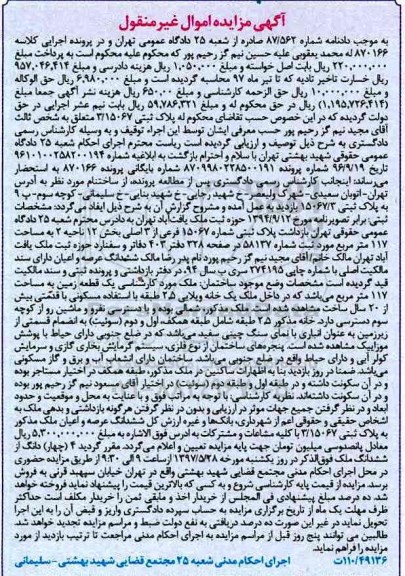 آگهی مزایده اموال غیر منقول
به موجب دادنامه شماره ۸۷/۵۶۲ صادره از شعبه ۲۵ دادگاه عمومی تهران و در پرونده اجرایی کلاسه
۸۷۰۱۶۶ له محمد یعقوبی علیه حسین نیم گز رحیم پور که محکوم علیه محکوم است به پرداخت مبلغ
۲۲۰,۰۰۰,۰۰۰ ریال بابت اصل خواسته و مبلغ ۱,۰۵۰,۰۰۰ ریال هزینه دادرسی و مبلغ ۹۵۷,۰۴۶,۴۱۴
ریال خسارت تاخیر تادیه که تا تیر ماه ۹۷ محاسبه گردیده است و مبلغ ۶,۹۸۰,۰۰۰ ریال حق الوکاله
و مبلغ ۱۰,۰۰۰,۰۰۰ ریال حق الزحمه کارشناسی و مبلغ ۶۵۰,۰۰۰ ریال هزینه نشر آگهی جمعا مبلغ
(۱,۱۹۵,۷۲۶,۴۱۴) ریال در حق محکوم له و مبلغ ۵۹,۷۸۶,۳۲۱ ریال بابت نیم عشر اجرایی در حق
دولت گردیده که در این خصوص حسب تقاضای محکوم له پلاک ثبتی ۳/۱۵۰۶۷ متعلق به شخص ثالث
آقای مجید نیم گز رحیم پور حسب معرفی ایشان توسط این اجراء توقیف و به وسیله کارشناس رسمی
دادگستری به شرح ذیل توصیف و ارزیابی گردیده است ریاست محترم اجرای احکام شعبه ۲۵ دادگاه
عمومی حقوقی شهید بهشتی تهران با سلام و احترام بازگشت به ابلاغیه شماره ۹۶۱۰۱۰۰۲۵۸۲۰۰۱۹۴
مورخ ۹۶/۹/۱۹ شماره پرونده ۸۷۰۹۹۸۰۲۲۸۵۰۰۱۹۱ شماره بایگانی پرونده ۸۷۰۱۶۶ به استحضار
می‌رساند: اینجانب کارشناس رسمی دادگستری پس از مطالعه پرونده، از ساختنم مورد نظر به آدرس
تهران-اتوبان سعیدی- شهرک ولیعصر- خ شهید رجایی- خ شهید بنایی- خ سلیمانی- کوچه سوم- پ ۹
پلاک ثبتی ۱۵۰۶۷/۳ بازدید به عمل آمده و مشروح گزارش آن به شرح ذیل ایفاد می‌گردد: مشخصات
ثبتی: برابر تصویرنامه مورخ ۱۳۹۴/۹/۱۲ حوزه ثبت ملک یافت‌آباد تهران به دادرس محترم شعبه ۲۵ دادگاه
عمومی حقوقی تهران بازداشت پلاک ثبتی شماره ۱۵۰۶۷ فرعی از ۳ اصلی بخش ۱۲ ناحیه ۲ به مساحت
۱۱۷ متر مربع مورد ثبت شماره ۵۸۱۳۷ در صفحه ۳۲۸ دفتر ۴۰۳ دفاتر و سفنادر حوزه ثبت ملک یافت
آباد تهران مالک خانم/آقای مجید نیم گز رحیم پورد نام پدر رضا مالک ششدانگ عرصه و اعیان دارای سند
مالکیت اصلی با شماره چاپی ۲۷۴۱۹۵ سری پ سال ۹۴، در دفتر بازداشتی و پرونده ثبتی و سند مالکیت
قید گردیده است مشخصات وضع موجود ساختمان: ملک مورد کارشناسی یک قطعه زمین به مساحت
۱۱۷ متر مربع می‌باشد که در داخل ملک یک خانه ویلایی ۲.۵ طبقه با استفاده مسکونی با قدمتی بیش
از ۲۰ سال ساخت مشاهده شد. لذا ملک مذکور، شمالی بوده و با دسترسی نفرو و ماشین رو از کوچه
سوم دسترسی دارد. خانه مذکور ۲.۵ طبقه شامل طبقه همکف، اول و دوم (سوئیت) به انضمام قسمتی از
زیرزمین به عنوان انباری با نمای سنگ چینی سفید، می‌باشد که در ضلع جنوبی دارای حیاط با پوشش
موزاییک مشاهده شده است. پنجره‌های ساختمان از نوع فلزی، سیستم گرمایش بخاری گازی و سرمایش
کولر آبی و دارای حیاط واقع در ضلع جنوبی می‌باشد. ساختمان دارای انشعاب آب و برق و گاز مسکونی
می‌باشد. ضمنا در روز بازدید بنا به اظهارات ساکنین در ملک مذکور، طبقه همکف در اختیار مستاجر بوده
و در آن سکونت داشته و در طبقه اول و طبقه دوم (سوئیت) در اختیار آقای مسعود نیم گز رحیم پور بوده
و در آن سکونت داشته‌اند. نظریه کارشناسی: با توجه به مراتب فوق و با عنایت به محل و موقعیت و حدود
ابعاد و در نظر گرفتن جمیع جهات موثر در ارزیابی و بدون در نظر گرفتن هرگونه بازداشتی و بدهی ملک به
اشخاص حقیقی و حقوقی اعم از شهرداری، بانک‌ها و غیره ارزش کل ششدانگ عرصه و اعیان ملک مذکور
به پلاک ثبتی ۳/۱۵۰۶۷ با کلیه مشاعات و مشترکات به آدرس فوق الاشاره به مبلغ ۵,۳۰۰,۰۰۰,۰۰۰ ریال
معادل پانصدوسی میلیون تومان جهت پایه مزایده تعیین و اعلام می‌گردد. مقرر گردید ۴ (چهار) دانگ از
ششدانگ ملک فوق‌الذکر در روز یکشنبه مورخه ۱۳۹۷/۵/۲۸ از ساعت ۹ الی ۹:۳۰ از طریق مزایده حضوری
در محل اجرای احکام مدنی مجتمع قضایی شهید بهشتی واقع در تهران خیابان سپهبد قرنی به فروش
برسد. مزایده از قیمت پایه کارشناسی شروع و به کسی که بالاترین قیمت را پیشنهاد نماید فروخته خواهد
شد. ده درصد مبلغ پیشنهادی فی المجلس از خریدار اخذ و مابقی ثمن را خریدار مکلف است حداکثر
ظرف مهلت یک ماه از تاریخ برگزاری مزایده به حساب سپرده دادگستری واریز و قبض آن را به این اجرا
تحویل نماید در غیر این صورت ده درصد دریافتی به نفع دولت ضبط و مراسم مزایده تجدید خواهد شد.
طالبین می توانند پنج روز قبل از مراسم مزایده به اجرای احکام مدنی مراجعت تا ترتیب بازدید از مورد
مزایده را فراهم نماید.
۱۱۰/۴۹۱۳۶ت اجرای احکام مدنی شعبه ۲۵ مجتمع قضایی شهید بهشتی-سلیمانی